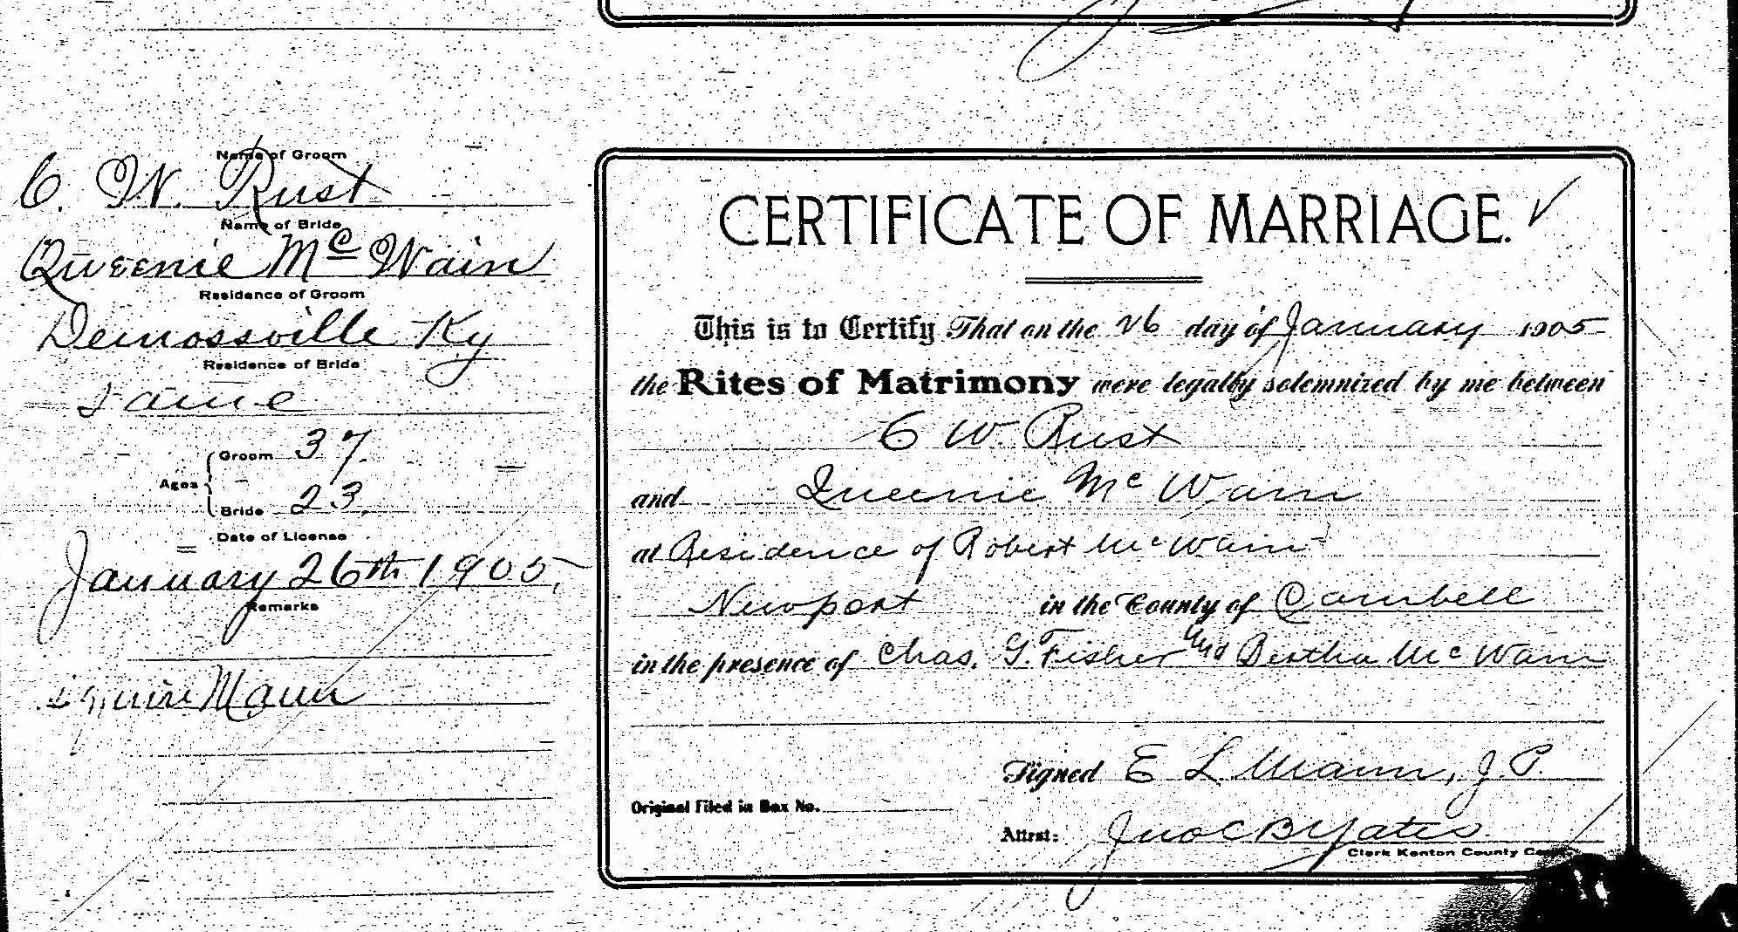 Name of Groom
C. W. Rust
Name of Bride
Queenie Mc Wain
Residence of Groom
Demossville Ky
Residence of Bride
Same
Ages
Groom 37.
Bride 23.
Date of License
January 26th 1905,
Remarks
Squire Mann
CERTIFICATE OF MARRIAGE.
This is to Certify That on the 26 day of January 1905
the Rites of Matrimony were legally solemnized by me between
C W. Rust
and Queenie Mc Wain
at Residence of Robert McWain
Newport in the County of Cambell
in the presence of Chas. G. Fisher and Bertha McWain
Signed E L Mann, J. P.
Original Filed in Box No.
Attest: Jno C B Yates
Clerk Kenton County